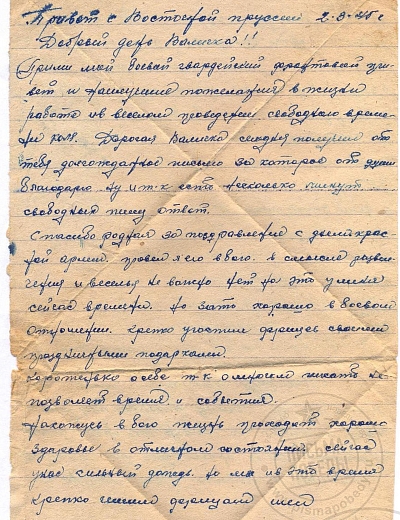 Привет с Восточной пруссии 2-3-45 г
Добрый день Валичка!!
Прими мой боевой гвардейский фронтовой при-
вет и наилучшие пожелания в жизни
работе и в веселом проведении свободного време-
ни коля. Дорогая Валичка сегодня получил от
тебя долгожданное письмо за которое от души
благодарю. Ну и т-к есть несколько минут
свободных пишу ответ.
Спасибо родная за поздравление с днем крас-
ной армии. провел я его в бою. в смысле развле-
чения и веселья не важно нет на это у меня
сейчас времени. но зато хорошо в боевом
отношении. крепко угостили фрицев своими
праздничными подарками.
Коротенько о себе т-к о многом писать не
позволяет время и события.
Нахожусь в бою жизнь проходит хорошо
здоровье в отличном состоянии. сейчас
у нас сильный дождь. но мы и в это время
крепко фрицам